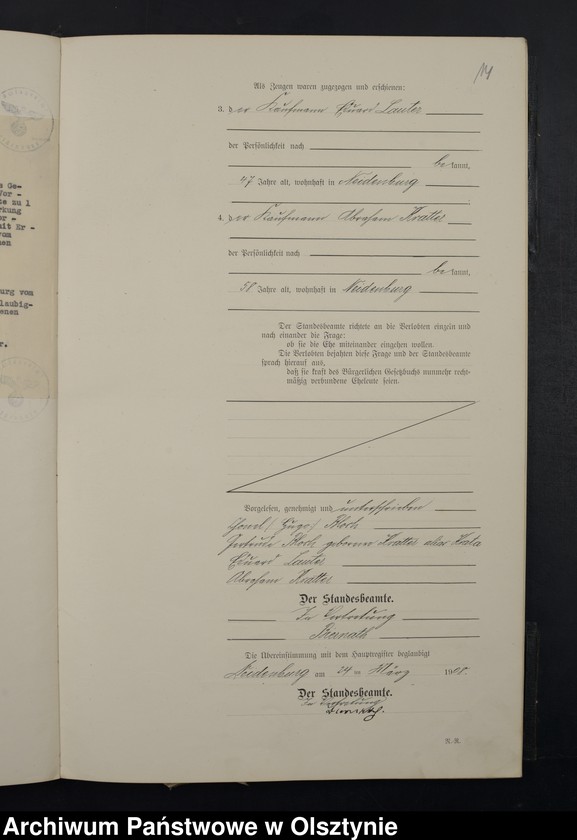 14
Als Zeugen waren zugezogen und erschienen:
3. der Kaufmann Eduard Lauter
der Persönlichkeit nach
bekannt,
47 Jahre alt, wohnhaft in Neidenburg
4. der Kaufmann Abraham Kratter
der Persönlichkeit nach
bekannt,
58 Jahre alt, wohnhaft in Neidenburg
Der Standesbeamte richtete an die Verlobten einzeln und
nach einander die Frage:
ob sie die Ehe miteinander eingehen wollen.
Die Verlobten bejahten diese Frage und der Standesbeamte
sprach hierauf aus,
daß sie kraft des Bürgerlichen Gesetzbuchs nunmehr recht-
mäßig verbundene Eheleute seien.
Vorgelesen, genehmigt und unterschrieben
(Hugo) Bloch
Gertrude Bloch geborene Kratter alias
Eduard Lauter
Abraham Kratter
Der Standesbeamte.
In Vertretung
Die Übereinstimmung mit dem Hauptregister beglaubigt
Neidenburg am 24 ten März 1908.
Der Standesbeamte.
In Vertretung
Ge-
Vor -
te zu 1
rkung
or -
mit Er -
vom
nen
urg vom
laubig-
enen
r.
N.-R.
Archiwum Państwowe w Olsztynie